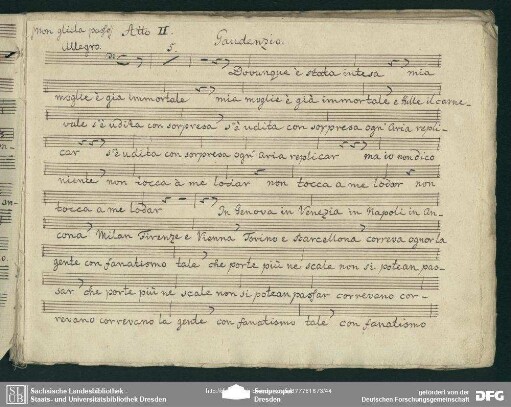 non gliela passo Atto II. Gaudenzio.
Allegro. 5.
Dovunque è stata intesa mia
moglie è già immortale mia moglie è già immortale e tutto il carne-
vale s'è udita con sorpresa s'è udita con sorpresa ogn' Aria repli-
car s'è udita con sorpresa ogn' Aria replicar ma io non dico
niente non tocca à me lodar non tocca a me lodar non
tocca a me lodar In Genova in Venezia in Napoli in An-
cona Milan Firenze e Vienna Torino e Barcellona correva ognor la
gente con fanatismo tale che porte più ne scale non si potean pas-
sar che porte più ne scale non si potean passar correvano cor-
revano correvano la gente con fanatismo tale con fanatismo
SLUB
Sächsische Landesbibliothek
Staats- und Universitätsbibliothek Dresden
gefördert von der
Deutschen Forschungsgemeinschaft
DFG